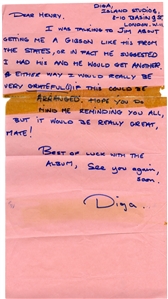 DIGA,
ISLAND STUDIOS
8-10 BASING ST
LONDON, W.11
DEAR HENRY,
I WAS TALKING TO JIM ABOUT
GETTING ME A GIBSON LIKE HIS FROM
THE STATES, OR IN FACT HE SUGGESTED
I HAD HIS AND HE WOULD GET ANOTHER.
EITHER WAY I WOULD REALLY BE
VERY GRATEFUL IF THIS COULD BE
ARRANGED. HOPE YOU DO
MIND ME REMINDING YOU ALL,
BUT IT WOULD BE REALLY GREAT,
MATE!
BEST OF LUCK WITH THE
ALBUM, SEE YOU AGAIN,
SOON.
Diga